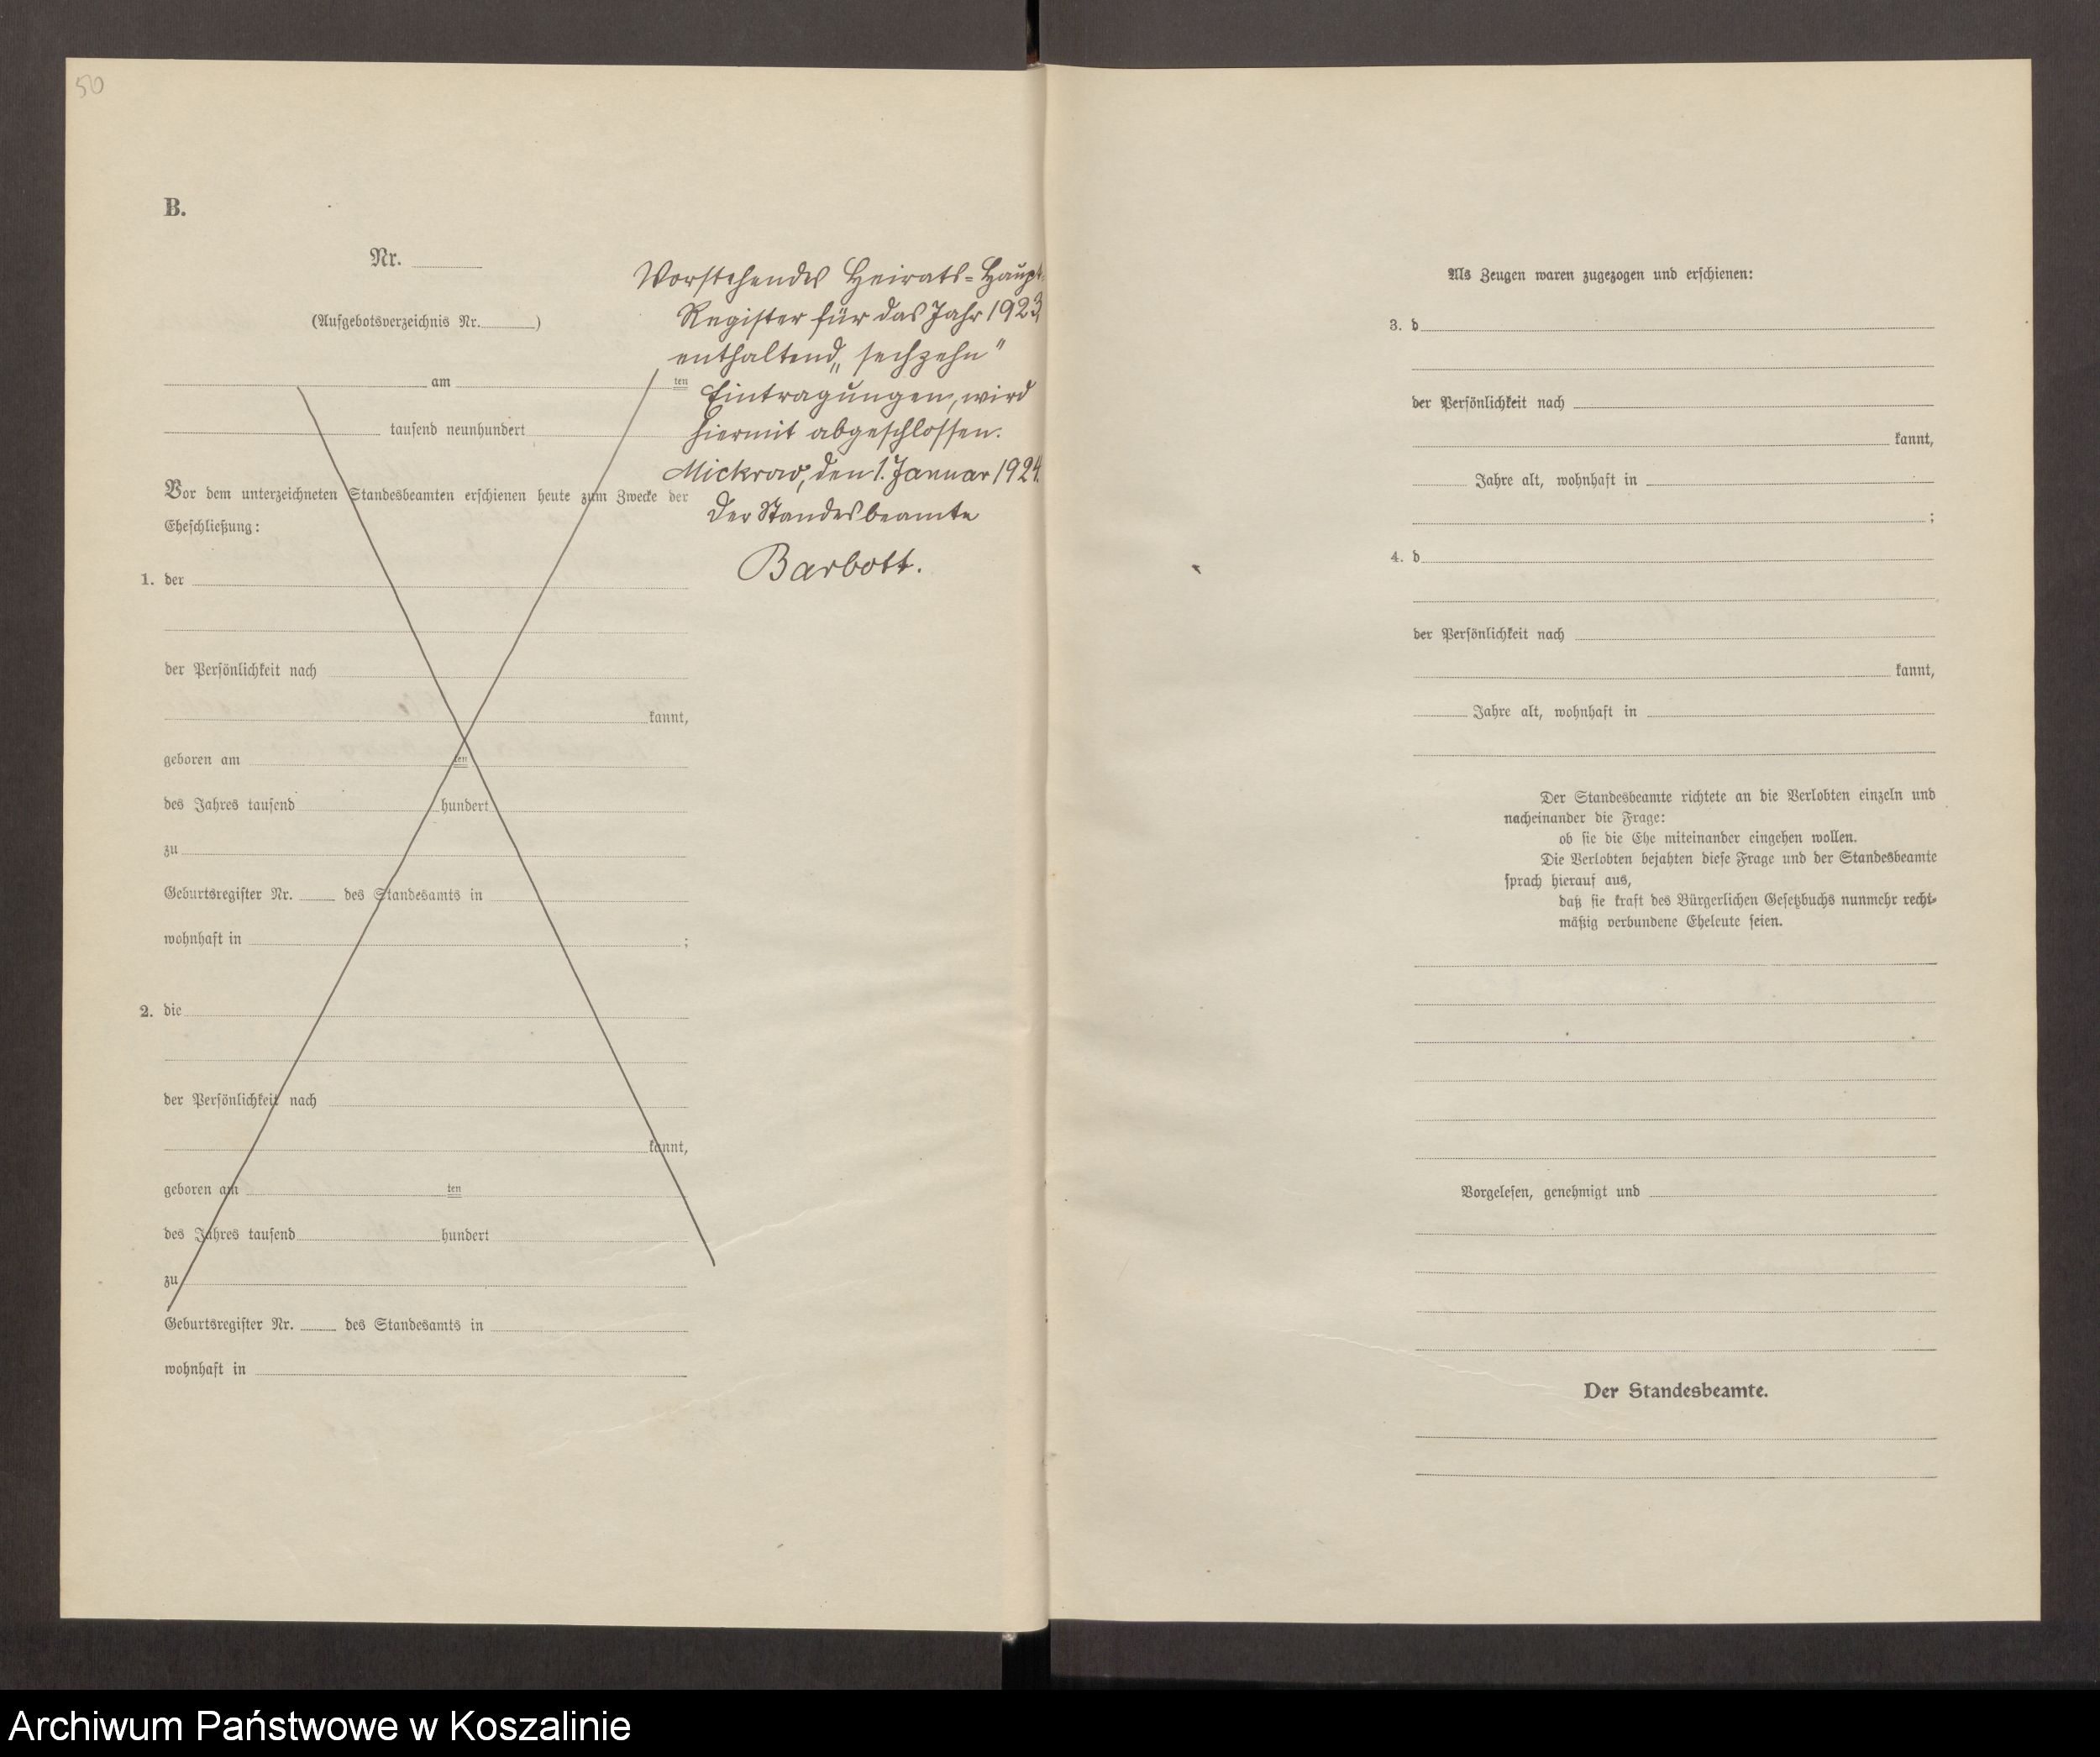 50
B.
Nr.
(Aufgebotsverzeichnis Nr. )
am ten
tausend neunhundert
Vor dem unterzeichneten Standesbeamten erschienen heute zum Zwecke der
Eheschließung:
1. der
der Persönlichkeit nach
kannt,
geboren am ten
des Jahres tausend hundert
zu
Geburtsregister Nr. des Standesamts in
wohnhaft in ;
2. die
der Persönlichkeit nach
kannt,
geboren am ten
des Jahres tausend hundert
zu
Geburtsregister Nr. des Standesamts in
wohnhaft in
Vorstehendes Heirats-Haupt-
Register für das Jahr 1923,
enthaltend „sechzehn"
Eintragungen, wird
hiermit abgeschlossen.
Mickrow, den 1. Januar 1924.
Der Standesbeamte
Barbott.
Als Zeugen waren zugezogen und erschienen:
3. d
der Persönlichkeit nach
kannt,
Jahre alt, wohnhaft in
;
4. d
der Persönlichkeit nach
kannt,
Jahre alt, wohnhaft in
Der Standesbeamte richtete an die Verlobten einzeln und
nacheinander die Frage:
ob sie die Ehe miteinander eingehen wollen.
Die Verlobten bejahten diese Frage und der Standesbeamte
sprach hierauf aus,
daß sie kraft des Bürgerlichen Gesetzbuchs nunmehr recht-
mäßig verbundene Eheleute seien.
Vorgelesen, genehmigt und
Der Standesbeamte.
Archiwum Państwowe w Koszalinie